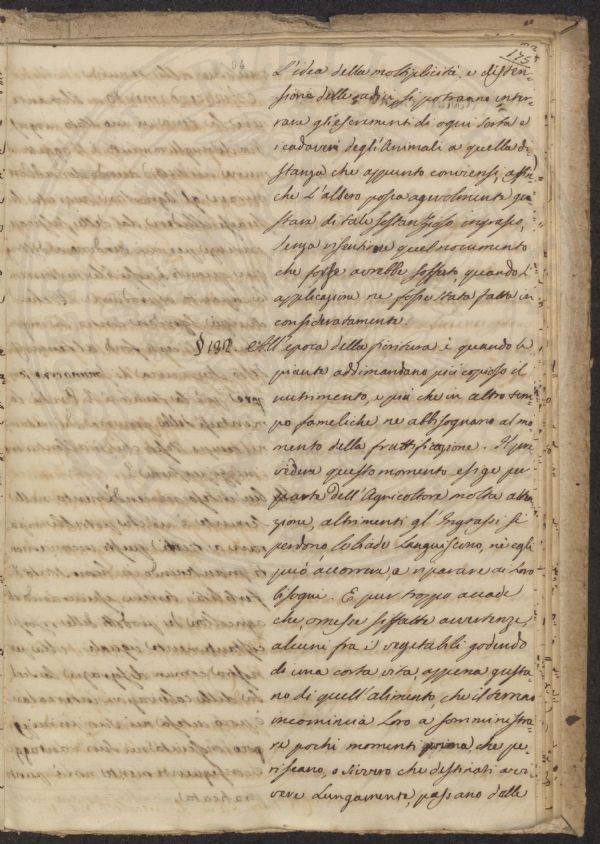 175
64
L'idea della moltiplicità, e disten-
sione delle radici si potranno inter-
rare gli escrementi di ogni sorta e
i cadaveri degli Animali a quella di-
stanza che appunto conviensi, affin-
che L'albero possa agevolmente gu-
stare di tale sostanzioso ingrasso,
senza risentire quel nocumento
che forse avrebbe sofferto, quando l'
applicazione ne fosse stata fatta in-
consideratamente.
§ 192. All'epoca della fioritura è quando le
piante addimandano più copioso il
nutrimento, e più che in altro tem-
po fameliche ne abbisognano al mo-
mento della fruttificazione. Il pre-
vedere questo momento esige per
parte dell'Agricoltore molta atten-
zione, altrimenti gl'Ingrassi si
perdono, le biade Languiscono, nè egli
può accorrere a riparare ai Loro
bisogni. E pur troppo accade
che, omesse siffatte avvertenze,
alcuni fra i vegetabili godendo
di una corta vita, appena gusta-
no di quell'alimento, che il terreno
incomincia Loro a somministra-
re pochi momenti prima, che pe-
riscano, o sivvero che destinati a vi-
vere Lungamente, passano dalle